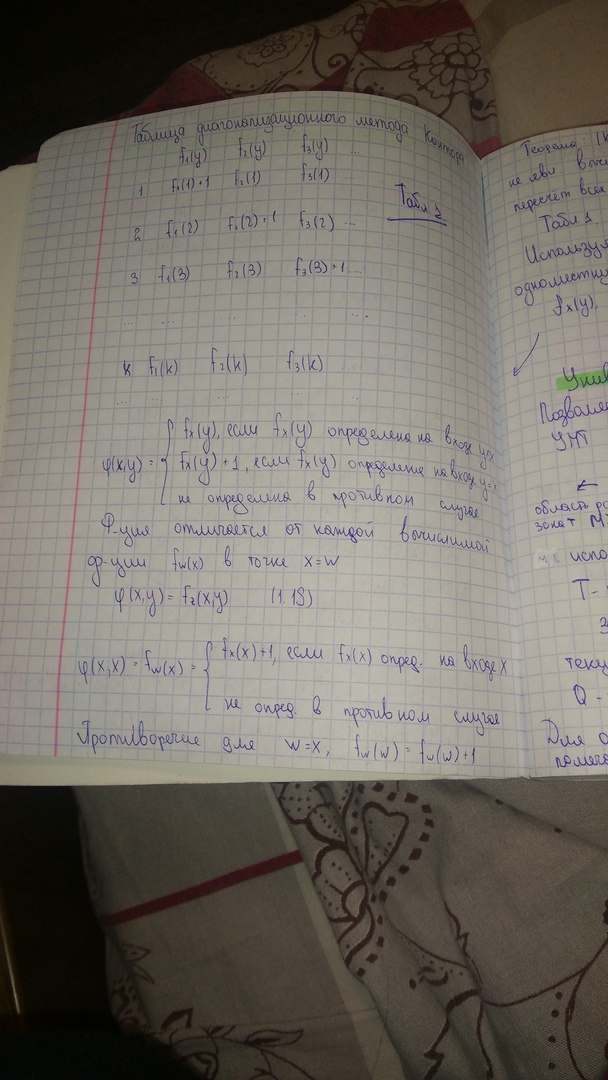 Таблица диагонализационного метода Кантора
f₁(y) f₂(y) f₃(y) ...
1 f₁(1)+1 f₂(1) f₃(1)
Табл 2.
2 f₁(2) f₂(2)+1 f₃(2) ...
3 f₁(3) f₂(3) f₃(3)+1 ...
... ... ... ...
к f₁(k) f₂(k) f₃(k)
... ... ...
φ(x,y) = { fₓ(y), если fₓ(y) определена на входе
fₓ(y)+1, если fₓ(y) определена на входе
не определена в противном случае
Ф-ция отличается от каждой вычислимой
ф-ции f_w(x) в точке x=w
φ(x,y) = f_z(x,y) (1.18)
φ(x,x) = f_w(x) = { fₓ(x)+1, если fₓ(x) опред. на входе x
не опред. в противном случае
Противоречие для w=x, f_w(w) = f_w(w)+1
Теорема
не
пересчёт всех
Табл 1.
Использу
одноместну
fₓ(y),
Унив
Позволяе
УМТ
область
испо
T -
теку
Q -
Для
помеча